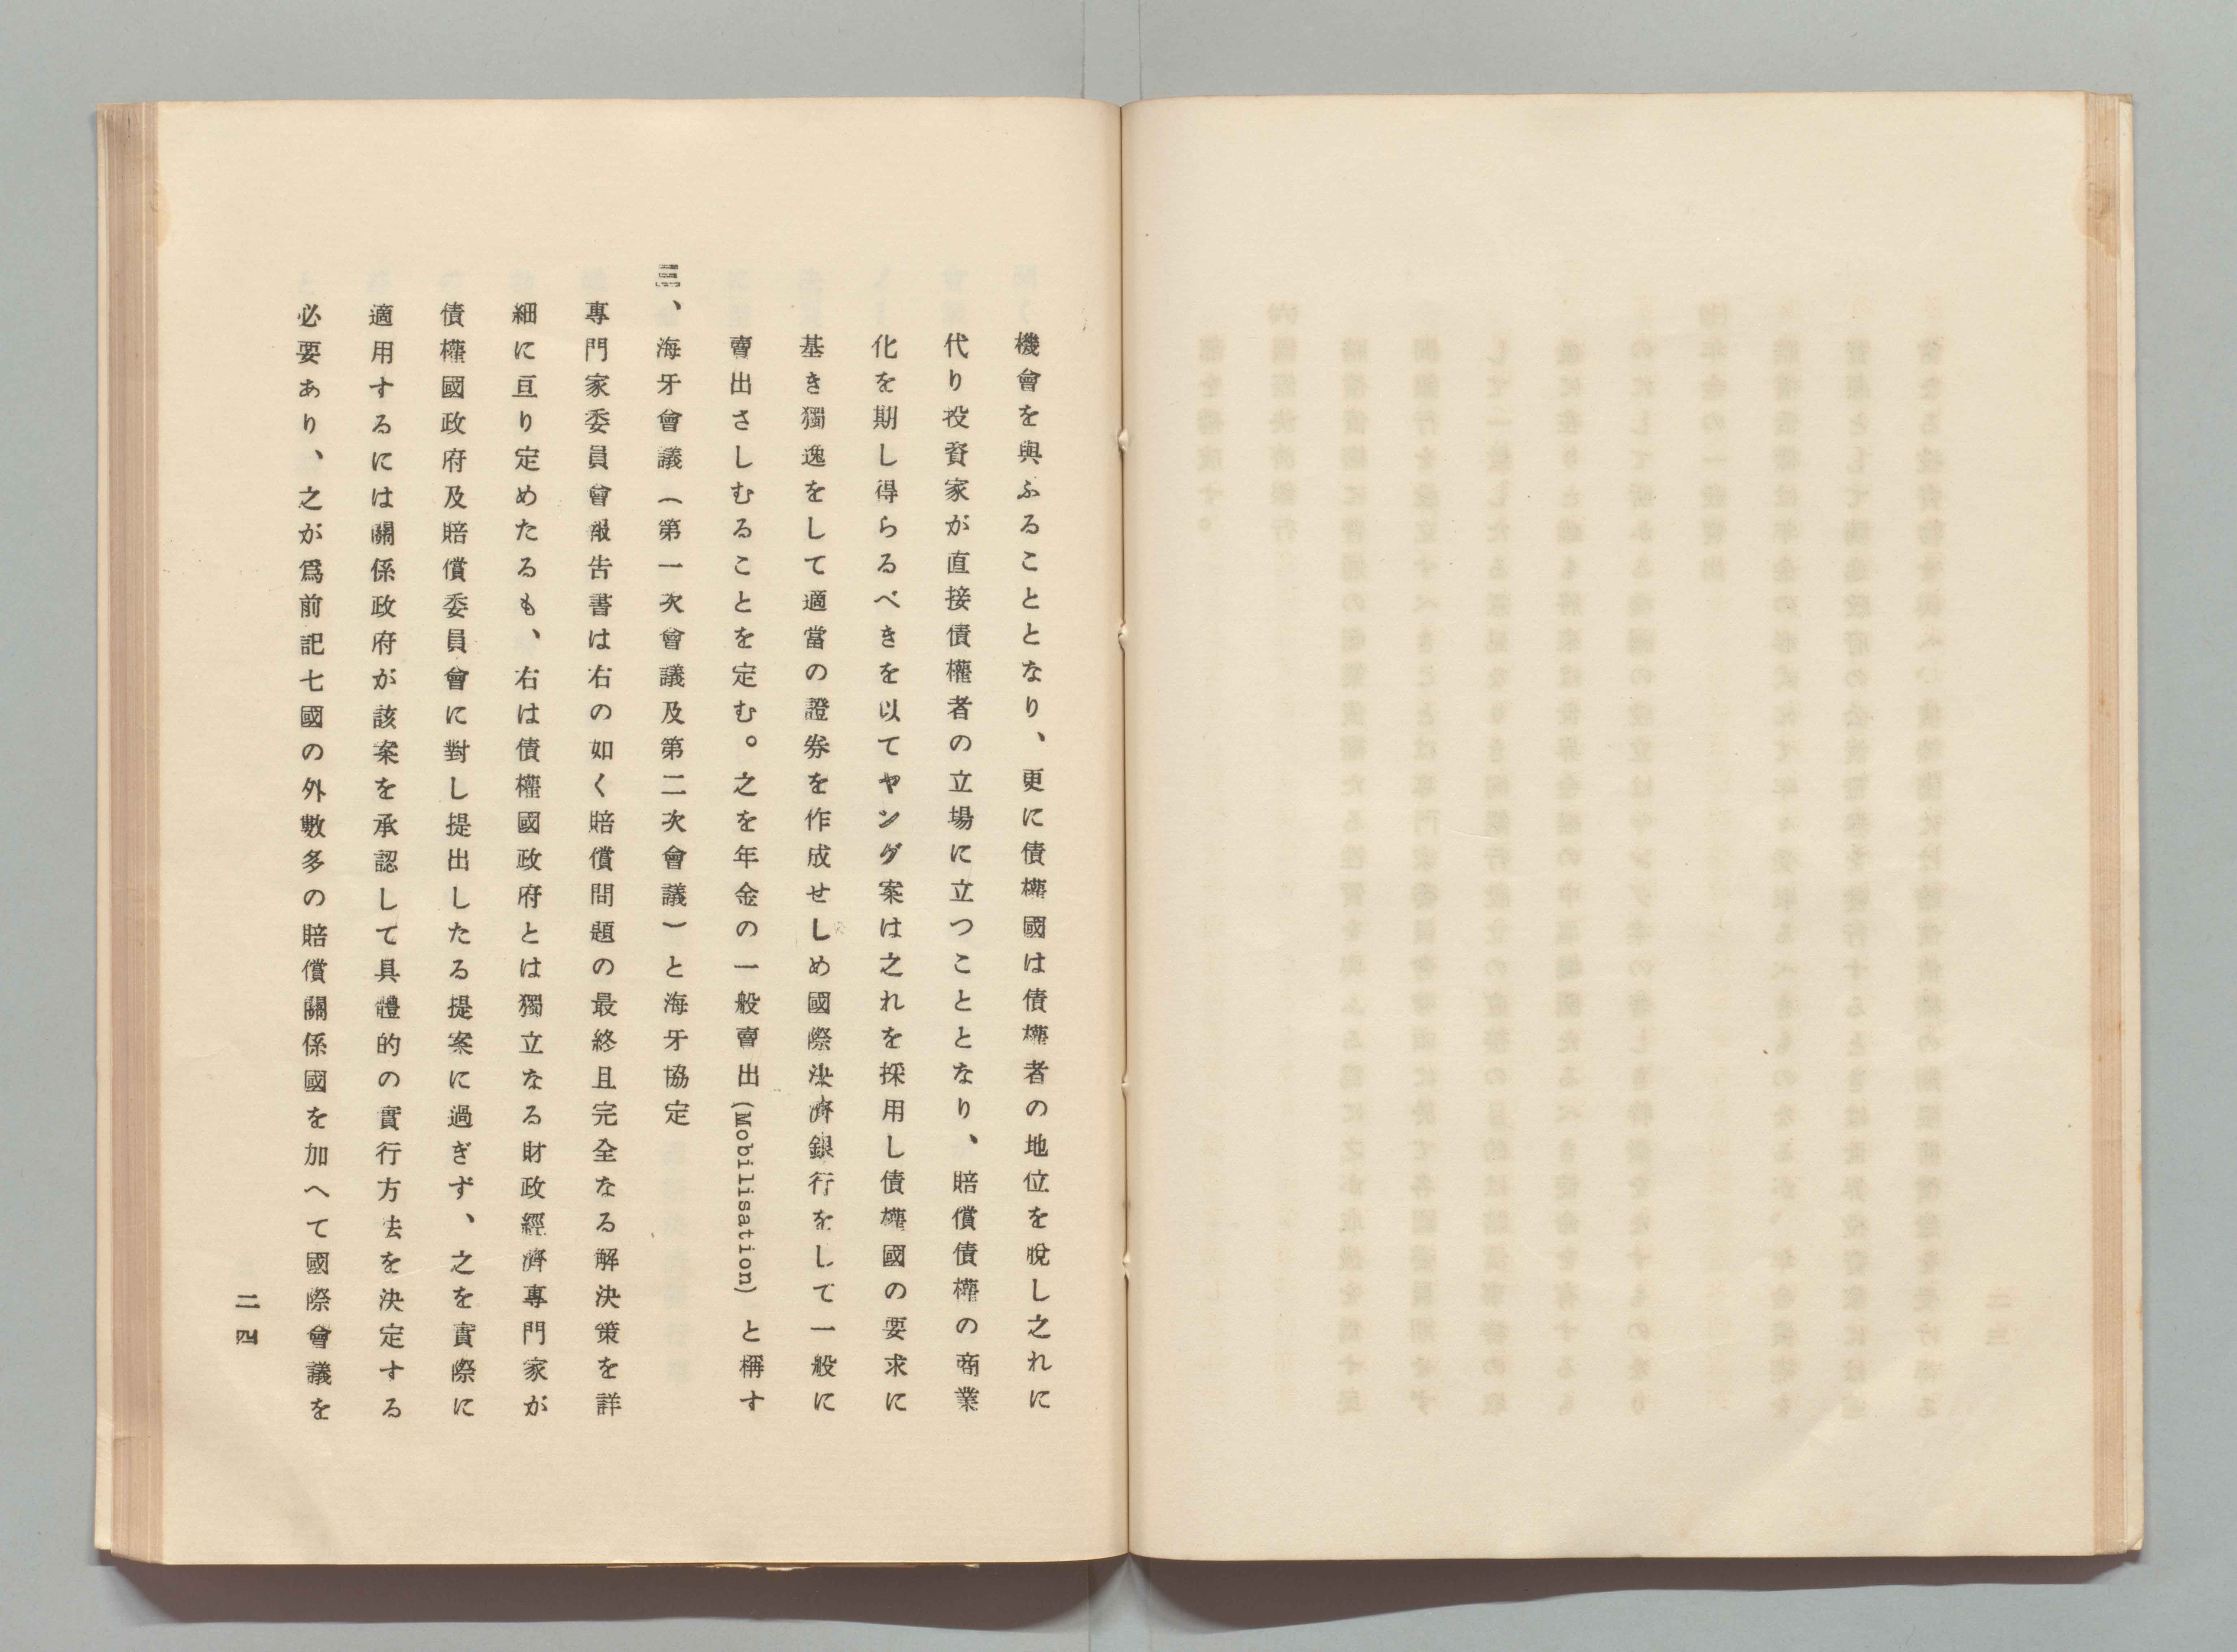 機會を與ふることとなり、更に債權國は債權者の地位を脫し之れに
代り投資家が直接債權者の立場に立つこととなり、賠償債權の商業
化を期し得らるべきを以てヤング案は之れを採用し債權國の要求に
基き獨逸をして適當の證券を作成せしめ國際決濟銀行をして一般に
賣出さしむることを定む。之を年金の一般賣出(Mobilisation)と稱す
三、海牙會議(第一次會議及第二次會議)と海牙協定
專門家委員會報告書は右の如く賠償問題の最終且完全なる解決策を詳
細に亘り定めたるも、右は債權國政府とは獨立なる財政經濟專門家が
債權國政府及賠償委員會に對し提出したる提案に過ぎず、之を實際に
適用するには關係政府が該案を承認して具體的の實行方法を決定する
必要あり、之が爲前記七國の外數多の賠償關係國を加へて國際會議を
二四